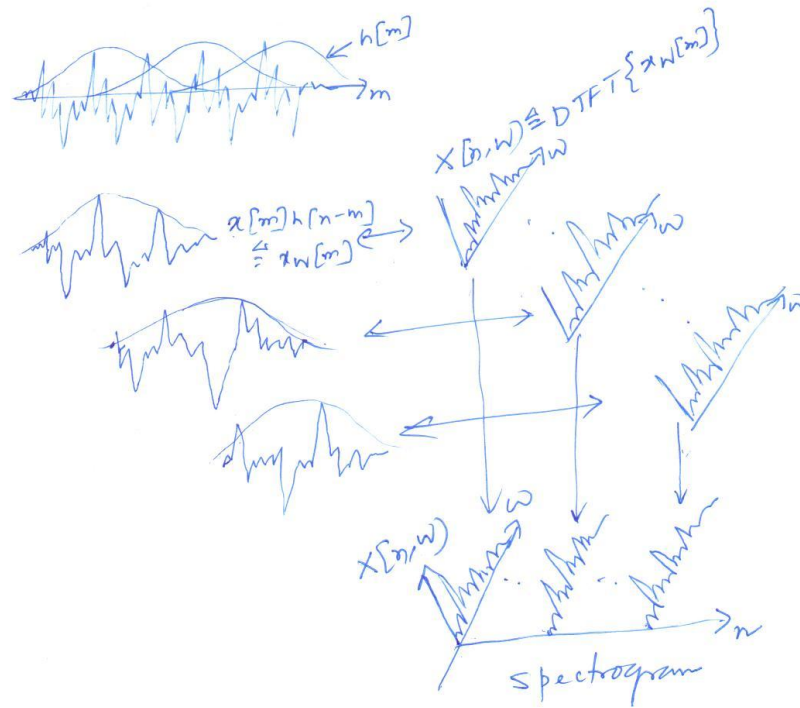 h[m]
m
X[n,ω) ≜ DTFT{xw[m]}
ω
x[m]h[n-m]
≜ xw[m]
ω
ω
X[n,ω)
ω
n
spectrogram